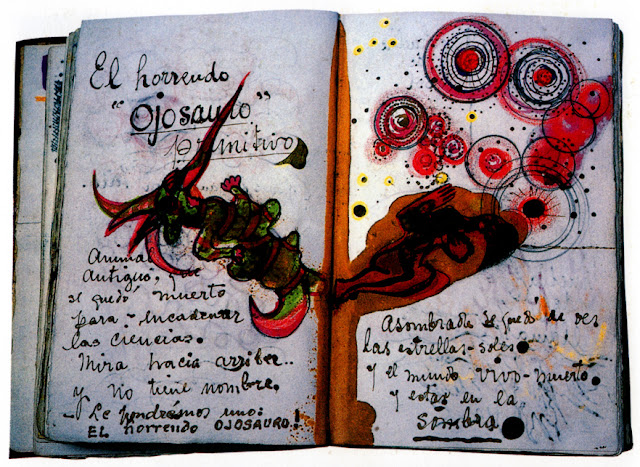 El horrendo
"OJOSAURO"
primitivo
Animal
antiguo, que
se quedó muerto
para encadenar
las ciencias.
Mira hacia arriba..
y no tiene nombre.
- Le pondremos uno:
EL horrendo OJOSAURO!
Asombrada se quedó de ver
las estrellas-soles
y el mundo vivo-muerto
y estar en la
sombra